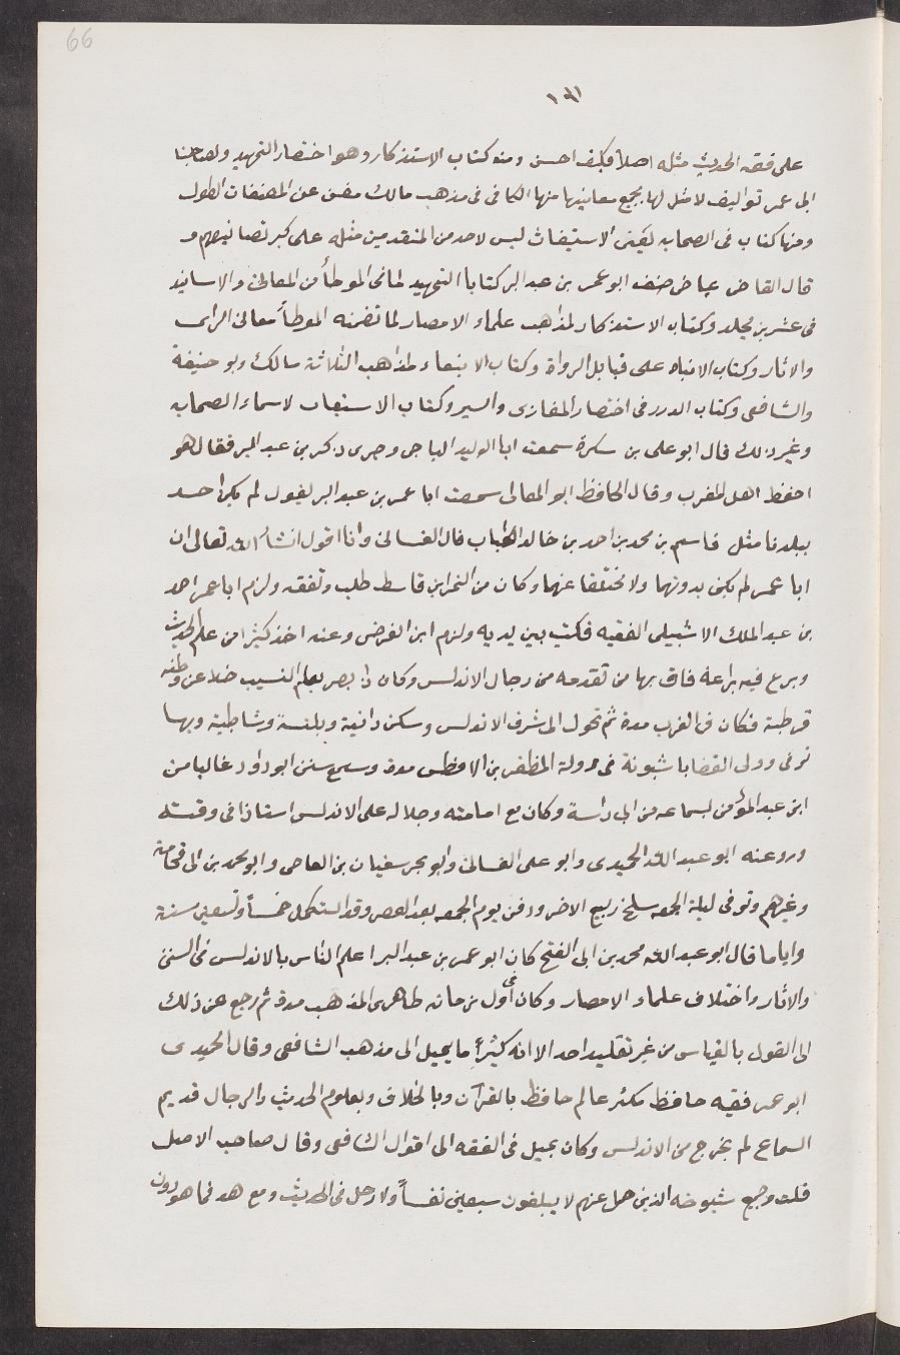 66
١٣١
على فقه الحديث مثله اصلاً فكيف احسن ومنه كتاب الاستذكار وهو اختصار التمهيد ولصاحبنا
ابى عمر تواليف لا مثل لها بجمع معانيها منها الكافى فى مذهب مالك مغن عن المصنفات الطول
ومنها كتاب فى الصحابه يعنى الاستيعاب ليس لاحد من المتقدمين مثله على كبر تصانيفهم و
قال القاض عياض صنف ابو عمر بن عبد البر كتابا التمهيد لما فى الموطأ من المعانى والاسانيد
فى عشرين مجلد وكتاب الاستذكار لمذاهب علماء الامصار لما تضمنه الموطأ معانى الراى
والاثار وكتاب الانباه على قبايل الرواة وكتاب الانتقاء لمذاهب الثلاثة مالك وبو حنيفة
والشافعى وكتاب الدرر فى اختصار المغازى والسير وكتاب الاستعاب لاسماء الصحابه
وغير ذلك قال ابو على بن سكرة سمعت ابا الوليد الباجى وجرى ذكر بن عبد البر فقال هو
احفظ اهل المغرب وقال الحافظ ابو المعالى سمعت ابا عمر بن عبد البر يقول لم يكن احد
ببلدنا مثل قاسم بن محمد بن احمد بن خالد الجباب قال الغسانى وانا اقول انشاء الله تعالى ان
ابا عمر لم يكن بدونهما ولا مختلفا عنهما وكان من النمر ابن قاسط طلب وتفقه ولزم ابا عمر احمد
بن عبد الملك الاشبيلى الفقيه فكتب بين يديه ولزم ابن الفرضى وعنه اخذ كثيرا من علم الحديث
وبرع فيه براعة فاق بها من تقدمه من رجال الاندلس وكان ذا بصر بعلم النسيب جلا عن وطنه
قرطبة فكان فى الغرب مدة ثم تحول الى شرق الاندلس وسكن دانية وبلنسة وشاطبة وبها
توفى وولى القضا باشبونة فى دولة المظفر بن الافطس مدة وسمع سنن ابو داود غاليا من
ابن عبد المؤمن لسماعه من ابى داسة وكان مع امامته وجلاله على الاندلس استاذا فى وقته
وروعنه ابو عبد الله الحميدى وابو على الغسانى وابو بحر سفيان بن العاصى وابو محمد بن ابى قحافة
وغيرهم وتوفى ليلة الجمعه سلخ ربيع الاخر ودفن يوم الجمعه بعد العصر وقد استكمل خمساً وتسعين سنة
واياما قال ابو عبد الله محمد بن ابى الفتح كان ابو عمر بن عبد البر اعلم الناس بالاندلس فى السنن
والاثار واختلاف علماء الامصار وكان فى أول زمانه ظاهرى المذهب مدة ثم رجع عن ذلك
الى القول بالقياس من غير تقليد احد الا انه كثيرًا ما يميل الى مذهب الشافعى وقال الحميدى
ابو عمر فقيه حافظ مكثر عالم حافظ بالقرآن وبالخلاف وبعلوم الحديث والرجال قديم
السماع لم يخرج من الاندلس وكان يميل فى الفقه الى اقوال الشافعى وقال صاحب الاصل
قلت وجميع شيوخه الذين حمل عنهم لا يبلغون سبعين نفساً ولا رحل فى الحديث ومع هذ فما هو بدون